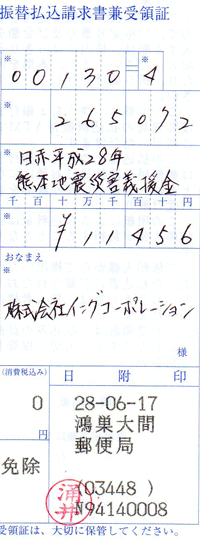 振替払込請求書兼受領証
※ 00130 = 4
※ 265072
※ 日赤平成28年
熊本地震災害義援金
千 百 十 万 千 百 十 円
※ ¥11456
おなまえ
※
株式会社イングコーポレーション
様
(消費税込み)
0
円
免除
日 附 印
28-06-17
鴻巣大間
郵便局
(03448 )
N94140008
涌井
受領証は、大切に保管してください。